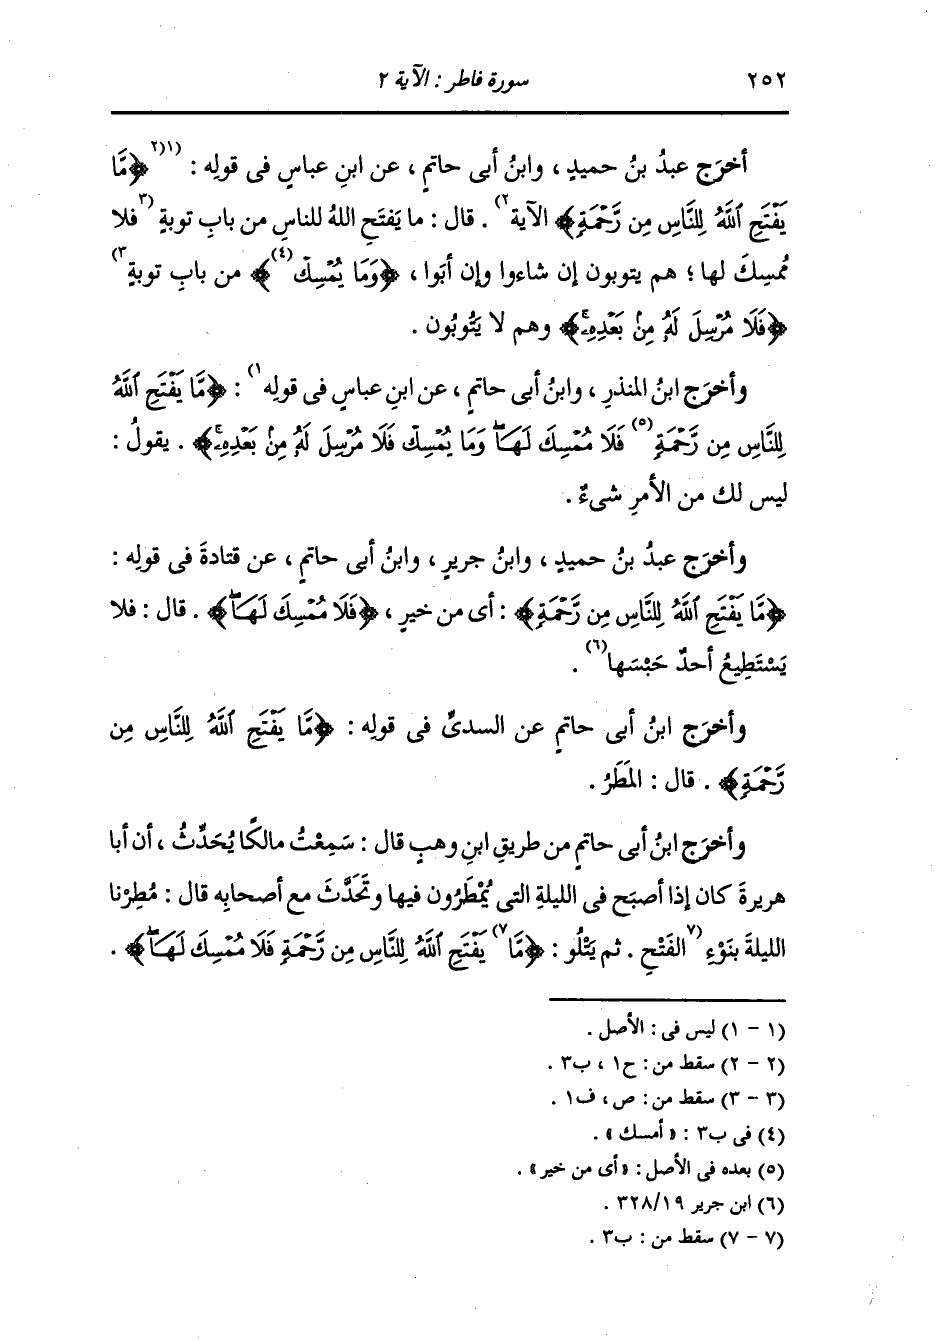 ٢٥٢ سورة فاطر : الآية ٢
أخرَج عبدُ بنُ حميدٍ ، وابنُ أبى حاتمٍ ، عن ابنِ عباسٍ فى قولِه : (١)(٢)﴿مَّا
يَفْتَحِ ٱللَّهُ لِلنَّاسِ مِن رَّحْمَةٍ﴾ الآية(٢) . قال : ما يَفتَحِ اللهُ للناسِ من بابِ توبةٍ (٣)فلا
مُمسِكَ لها ؛ هم يتوبون إن شاءوا وإن أبَوا ، ﴿وَمَا يُمْسِكْ(٤)﴾ من بابِ توبةٍ(٣)
﴿فَلَا مُرْسِلَ لَهُۥ مِنۢ بَعْدِهِۦۚ﴾ وهم لا يَتُوبُون .
وأخرَج ابنُ المنذرِ ، وابنُ أبى حاتمٍ ، عن ابنِ عباسٍ فى قولِه(١) : ﴿مَّا يَفْتَحِ ٱللَّهُ
لِلنَّاسِ مِن رَّحْمَةٍ(٥) فَلَا مُمْسِكَ لَهَاۖ وَمَا يُمْسِكْ فَلَا مُرْسِلَ لَهُۥ مِنۢ بَعْدِهِۦۚ﴾ . يقولُ :
ليس لك من الأمرِ شىءٌ .
وأخرَج عبدُ بنُ حميدٍ ، وابنُ جريرٍ ، وابنُ أبى حاتمٍ ، عن قتادةَ فى قولِه :
﴿مَّا يَفْتَحِ ٱللَّهُ لِلنَّاسِ مِن رَّحْمَةٍ﴾ : أى من خيرٍ ، ﴿فَلَا مُمْسِكَ لَهَاۖ﴾ . قال : فلا
يَسْتَطِيعُ أحدٌ حَبْسَها(٦) .
وأخرَج ابنُ أبى حاتمٍ عن السدىِّ فى قولِه : ﴿مَّا يَفْتَحِ ٱللَّهُ لِلنَّاسِ مِن
رَّحْمَةٍ﴾ . قال : المَطَرُ .
وأخرَج ابنُ أبى حاتمٍ من طريقِ ابنِ وهبٍ قال : سَمِعْتُ مالكًا يُحَدِّثُ ، أن أبا
هريرةَ كان إذا أصبَح فى الليلةِ التى يُمْطَرُون فيها وتَحَدَّثَ مع أصحابِه قال : مُطِرْنا
الليلةَ بنَوْءِ (٧)الفَتْحِ . ثم يَتْلُو : ﴿مَّا(٧) يَفْتَحِ ٱللَّهُ لِلنَّاسِ مِن رَّحْمَةٍ فَلَا مُمْسِكَ لَهَاۖ﴾ .
(١ - ١) ليس فى : الأصل .
(٢ - ٢) سقط من : ح١ ، ب٣ .
(٣ - ٣) سقط من : ص ، ف١ .
(٤) فى ب٣ : «أمسك» .
(٥) بعده فى الأصل : «أى من خير» .
(٦) ابن جرير ٣٢٨/١٩ .
(٧ - ٧) سقط من : ب٣ .